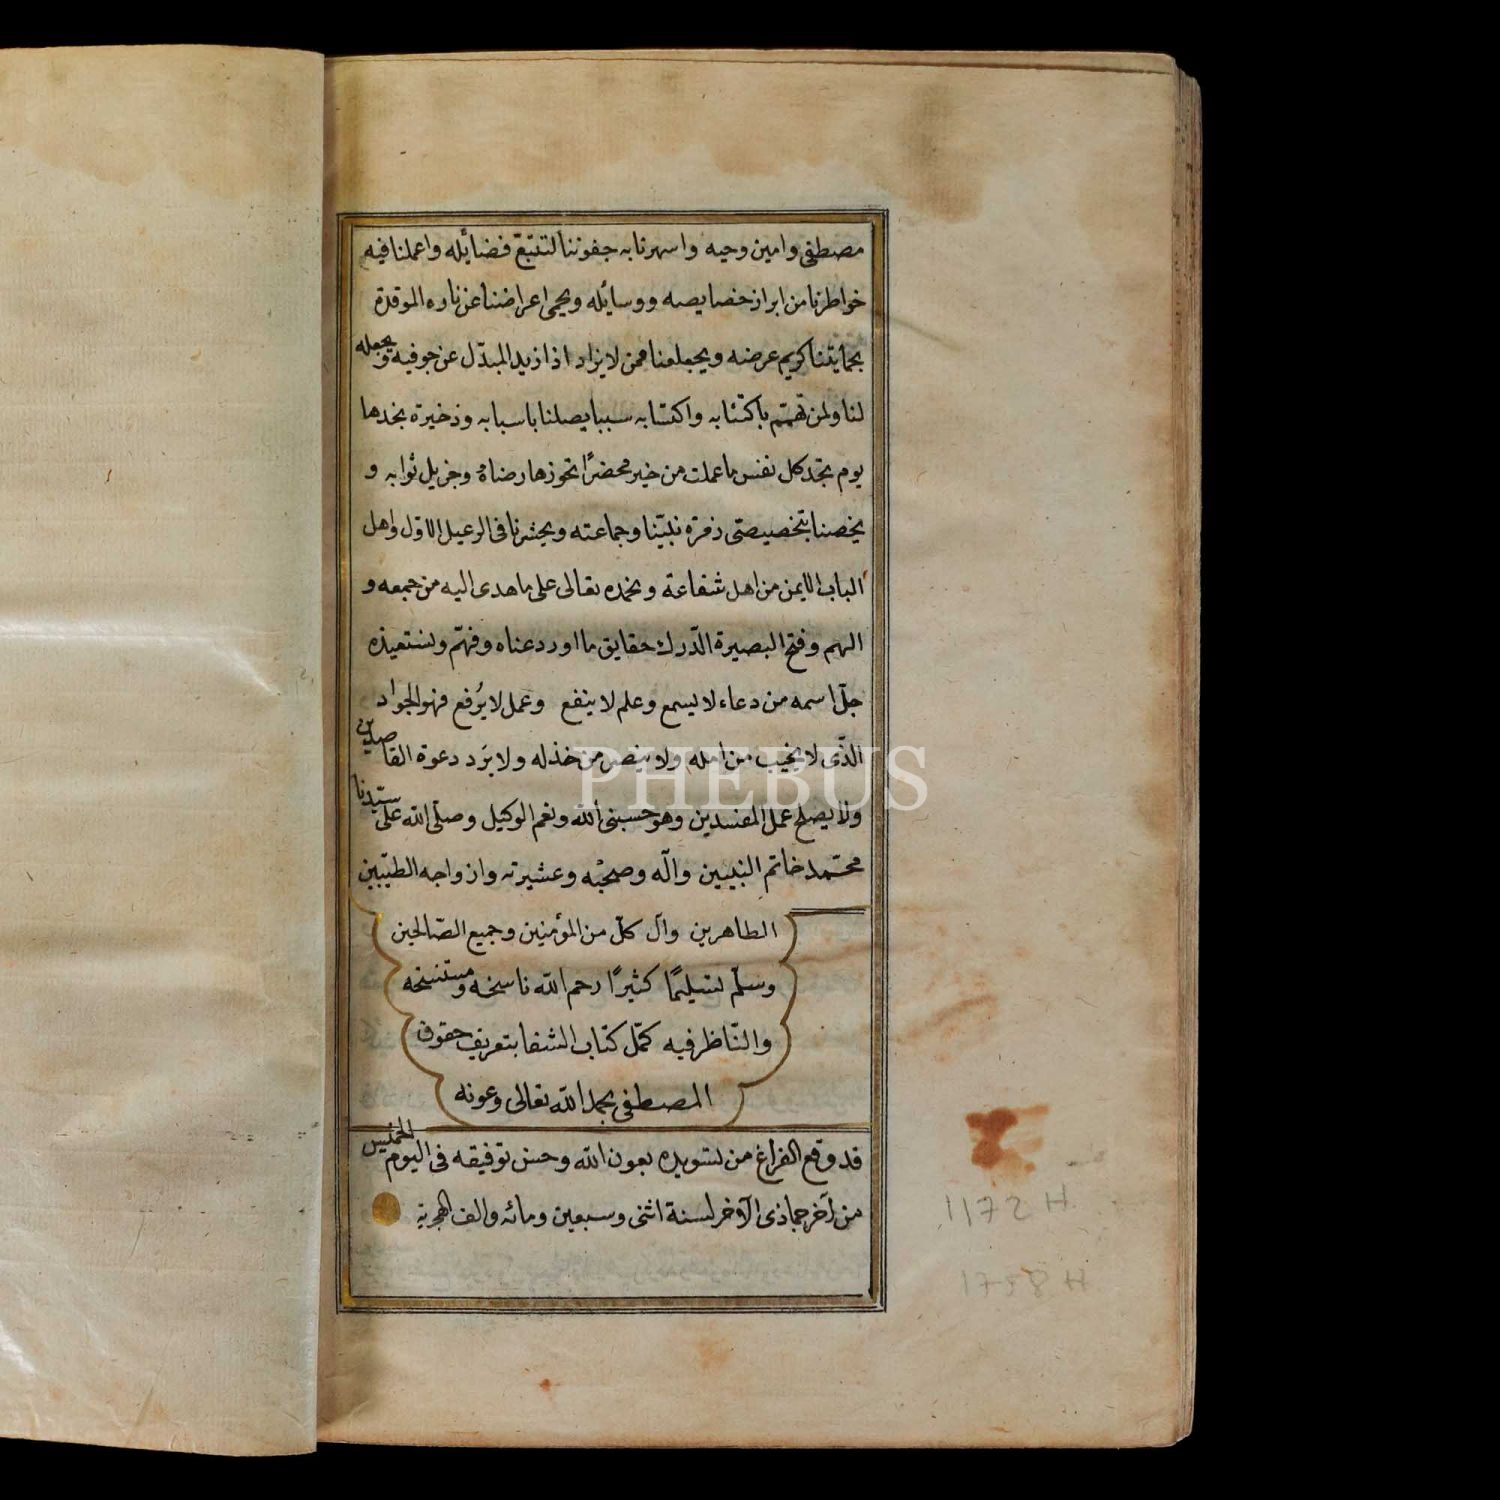 مصطفى وامين وحيه واسهرنا به جفوننا لتتبّع فضائله واعملنا فيه
خواطرنا من ابراز خصايصه ووسائله ويحمى اعراضنا عن ناره الموقدة
بحمايتنا كريم عرضه ويجعلنا ممن لا يزاد اذا ازيد المبدّل عن حوضه ويجعله
لنا ولمن تهمّم باكتتابه واكتسابه سببا يصلنا باسبابه وذخيرة نجدها
يوم تجد كل نفس ما عملت من خير محضرًا نحوز بها رضاه وجزيل ثوابه و
يخصنا بتخصيصى زمرة نبيّنا وجماعته ويحشرنا فى الرعيل الاوّل واهل
الباب الايمن من اهل شفاعة ونحمده تعالى على ما هدى اليه من جمعه و
الهم وفتح البصيرة الدّرك حقايق ما اوردعناه وفهّم ونستعيذه
جلّ اسمه من دعاء لا يسمع وعلم لا ينفع وعمل لا يُرفع فهو الجواد
الذّى لا يخيب من امله ولا ينصر من خذله ولا يَرد دعوة القاصدين
ولا يصلح عمل المفسدين وهو حسبنى الله ونعم الوكيل وصلّى الله على سيّدنا
محمّد خاتم النبيين وآله وصحبْه وعشيرته وازواجه الطيّبين
الطاهرين وآل كلّ من المؤمنين وجميع الصّالحين
وسلّم تسليمًا كثيرًا رحم الله ناسخه ومستنسخه
والنّاظر فيه كمّل كتاب الشفا بتعريف حقوق
المصطفى بحمد الله تعالى وعونه
قد وقع الفراغ من تسويده بعون الله وحسن توفيقه فى اليوم الخميس
من آخر جماذى الآخر لسنة اثنى وسبعين ومائه والف الهجرية
1172 H
PHEBUS